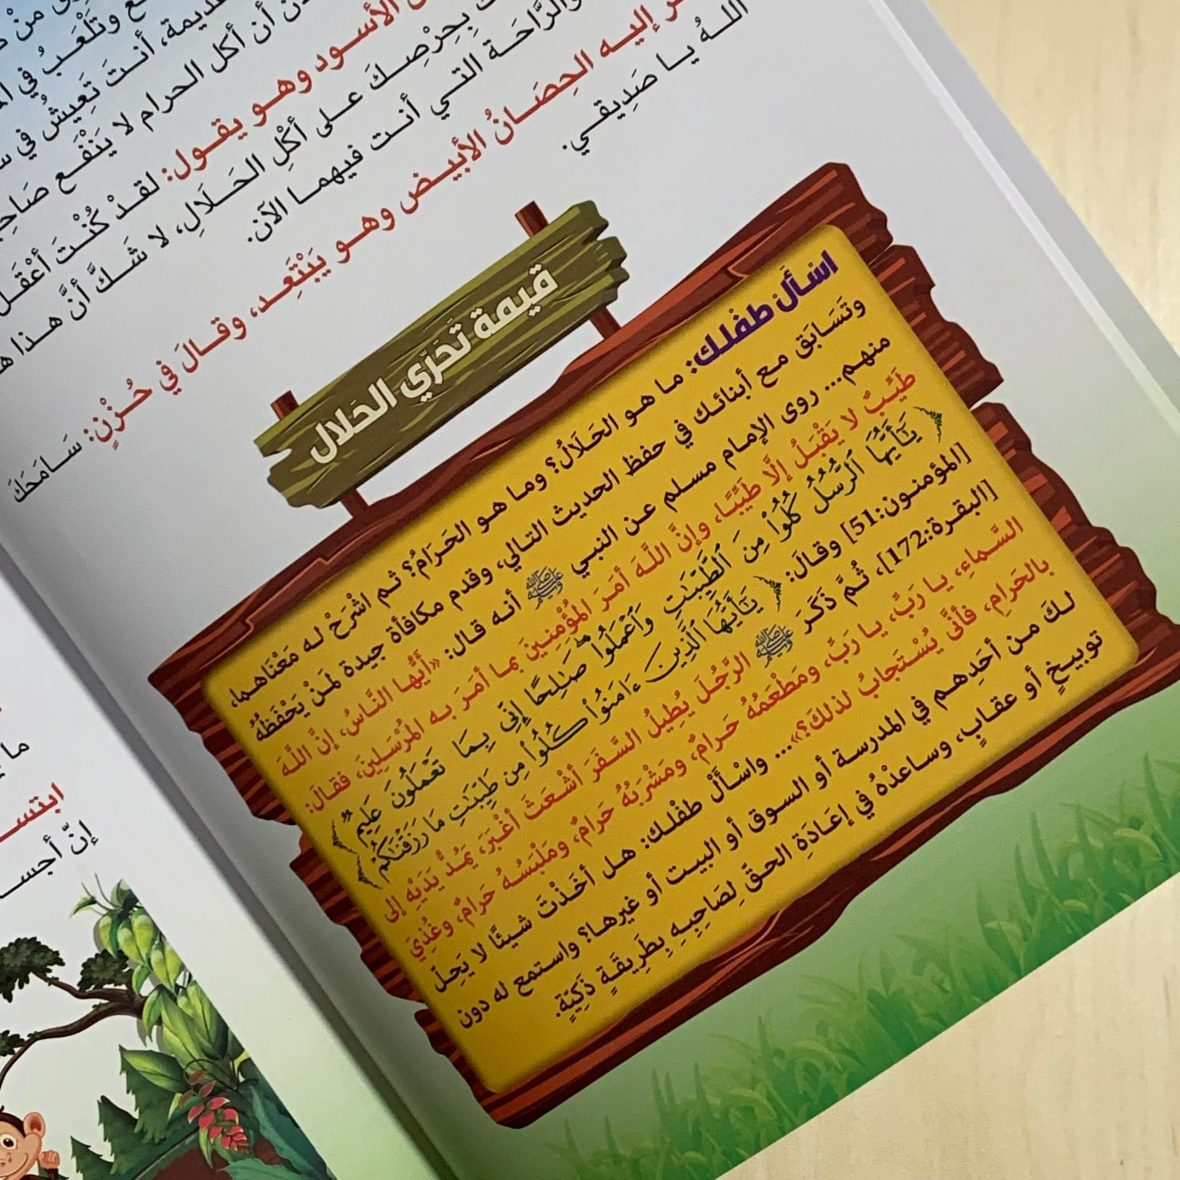 قديمة، أنتَ تَعِيشُ في
أن أكل الحرام لا يَنْفَع
الأسـود وهـو يقـول: لقدْ كُنْتَ أعْقَل
بِحِرْصِـكَ عـلى أكْلِ الحَـلَالِ، لا شَـكَّ أنَّ هـذا
والرَّاحَـة التـي أنـت فيهمـا الآن.
إليـه الحِصَـانُ الأبيـض وهـو يَبْتَعِـد، وقـالَ في حُـزْنٍ: سَـامَحَكَ
اللـهُ يـا صَـدِيقـي.
قيمة تَحَرّي الحَلال
اسْأل طفْلك: مـا هـو الحَـلَالُ؟ ومـا هـو الحَـرَامُ؟ ثـم اشْرَحْ لـه مَعْنَاهـما،
وتَسَابَق مـع أبنائـك في حفظ الحديث التـالي، وقدم مكافأة جيدة لمَنْ يَحْفَظُهُ
منهـم... روى الإمام مسلـم عـن النبي ﷺ أنـه قـال: «أيُّهـا النَّـاسُ، إنَّ اللَّـهَ
طَيِّـبٌ لا يَقْبَـلُ إلَّا طَيِّبًـا، وإنَّ اللَّـهَ أمَـرَ المُؤْمِنِـينَ بمـا أمَـرَ بـه المُرْسَلِينَ، فقـالَ:
﴿ يَٰٓأَيُّهَا ٱلرُّسُلُ كُلُوا۟ مِنَ ٱلطَّيِّبَٰتِ وَٱعْمَلُوا۟ صَٰلِحًا إِنِّي بِمَا تَعْمَلُونَ عَلِيمٌ ﴾
[المؤمنـون:51] وقـالَ: ﴿ يَٰٓأَيُّهَا ٱلَّذِينَ ءَامَنُوا۟ كُلُوا۟ مِن طَيِّبَٰتِ مَا رَزَقْنَٰكُمْ ﴾
[البقـرة:172]، ثُـمَّ ذَكَـرَ ﷺ الرَّجُـلَ يُطِيلُ السَّـفَرَ أشْـعَثَ أغْبَرَ، يَمُـدُّ يَدَيْهِ إلى
السَّـماءِ، يـا رَبِّ، يـا رَبِّ، ومَطْعَمُهُ حَـرامٌ، ومَشْرَبُهُ حَـرامٌ، ومَلْبَسُـهُ حَرامٌ، وغُذِيَ
بالحَـرامِ، فأنَّى يُسْـتَجابُ لذلـكَ؟»... واسْـأَلْ طفْلـك: هـل أخَـذْتَ شيئًـا لا يَحِـلّ
لـكَ مـن أحَدِهـم في المدرسـة أو السـوق أو البيـت أو غيرهـا؟ واستمع لـه دون
توبيـخٍ أو عقـابٍ، وسـاعدْهُ في إعَـادَةِ الحـقِّ لِصَاحِبِـهِ بِطَرِيقَـةٍ ذَكِيّةٍ.
ابتسـ
إنّ أجسـا